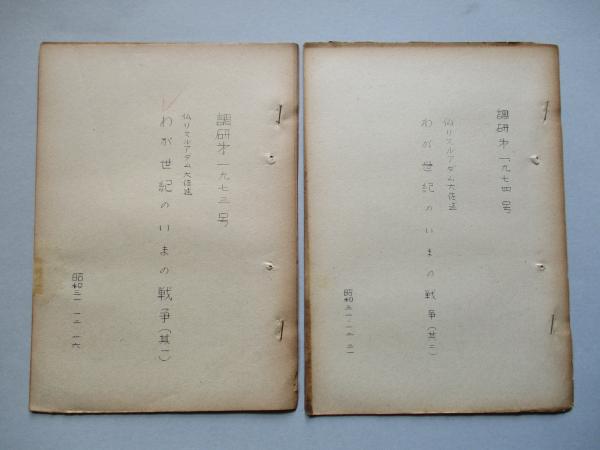 調研才一九七三号
仏リスルアダム大佐述
わが世紀のいまの戦争(其一)
昭和三一、一二、一六
調研才一九七四号
仏リスルアダム大佐述
わが世紀のいまの戦争(其二)
昭和三一、一二、二一